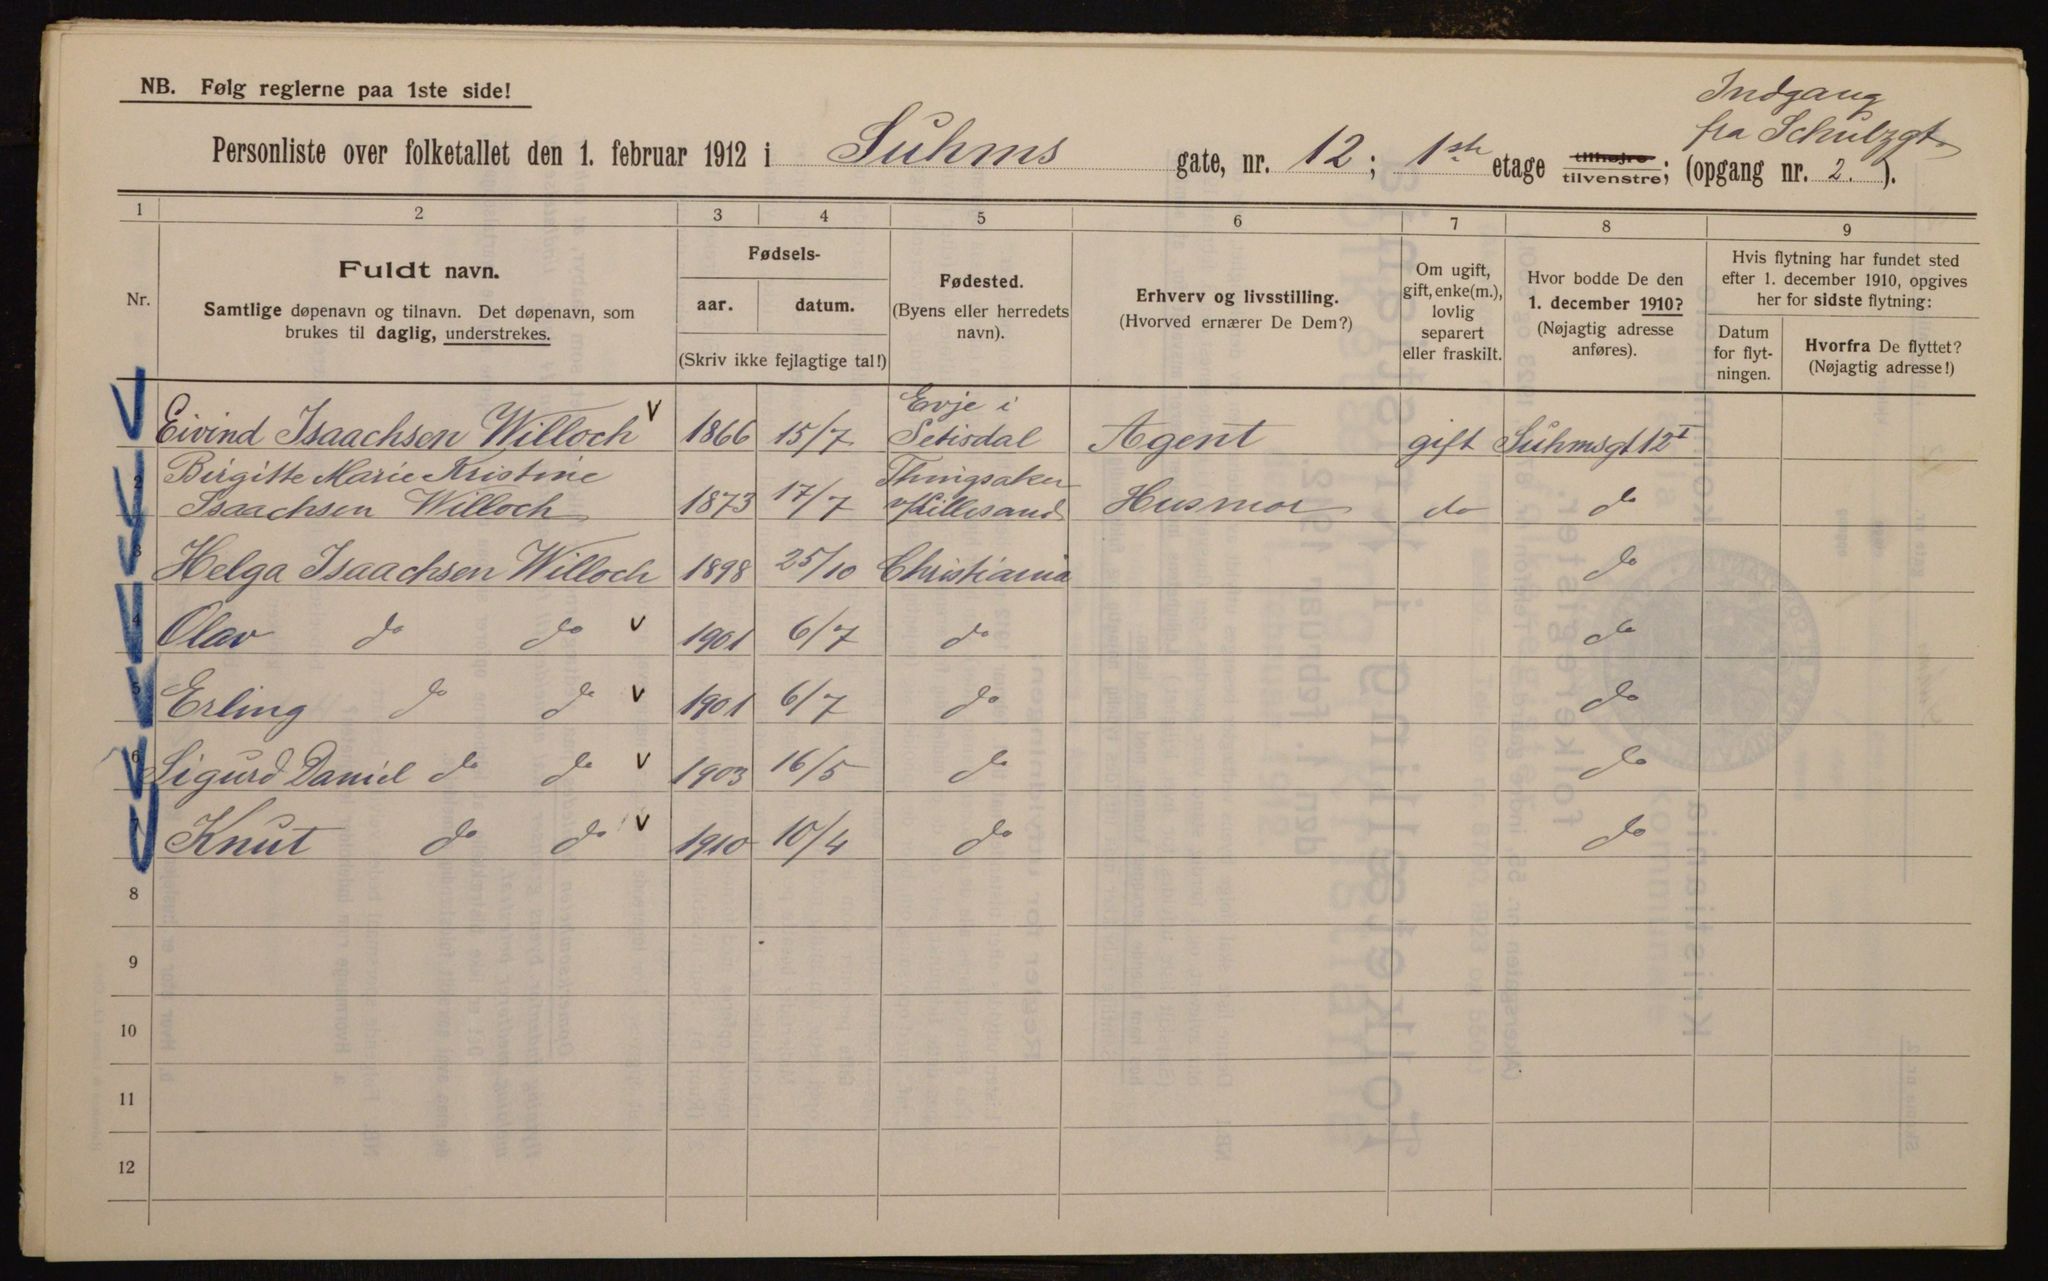 NB. Følg reglerne paa 1ste side!
Indgang
fra Schulzgt.
Personliste over folketallet den 1. februar 1912 i Suhms gate, nr. 12; 1ste etage tilhøjre tilvenstre; (opgang nr. 2.).
1 2 3 4 5 6 7 8 9
Nr.
Fuldt navn.
Samtlige døpenavn og tilnavn. Det døpenavn, som
brukes til daglig, understrekes.
Fødsels-
aar. datum.
(Skriv ikke fejlagtige tal!)
Fødested.
(Byens eller herredets
navn).
Erhverv og livsstilling.
(Hvorved ernærer De Dem?)
Om ugift,
gift, enke(m.),
lovlig
separert
eller fraskilt.
Hvor bodde De den
1. december 1910?
(Nøjagtig adresse
anføres).
Hvis flytning har fundet sted
efter 1. december 1910, opgives
her for sidste flytning:
Datum
for flyt-
ningen.
Hvorfra De flyttet?
(Nøjagtig adresse!)
Eivind Isaachsen Willoch v 1866 15/7 Evje i Setisdal Agent gift Suhmsgt 12 I
2 Birgitte Marie Kristine
Isaachsen Willoch 1873 17/7 v/Lillesand Husmor do do
3 Helga Isaachsen Willoch 1898 25/10 Christiania do
4 Olav do do v 1901 6/7 do do
5 Erling do do v 1901 6/7 do do
6 Sigurd Daniel do do v 1903 16/5 do do
7 Knut do do v 1910 10/4 do do
8
9
10
11
12